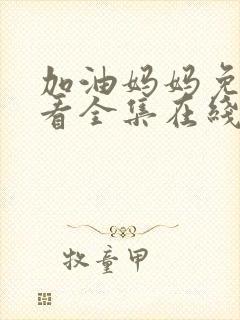 加油妈妈免
看全集在线
牧童甲